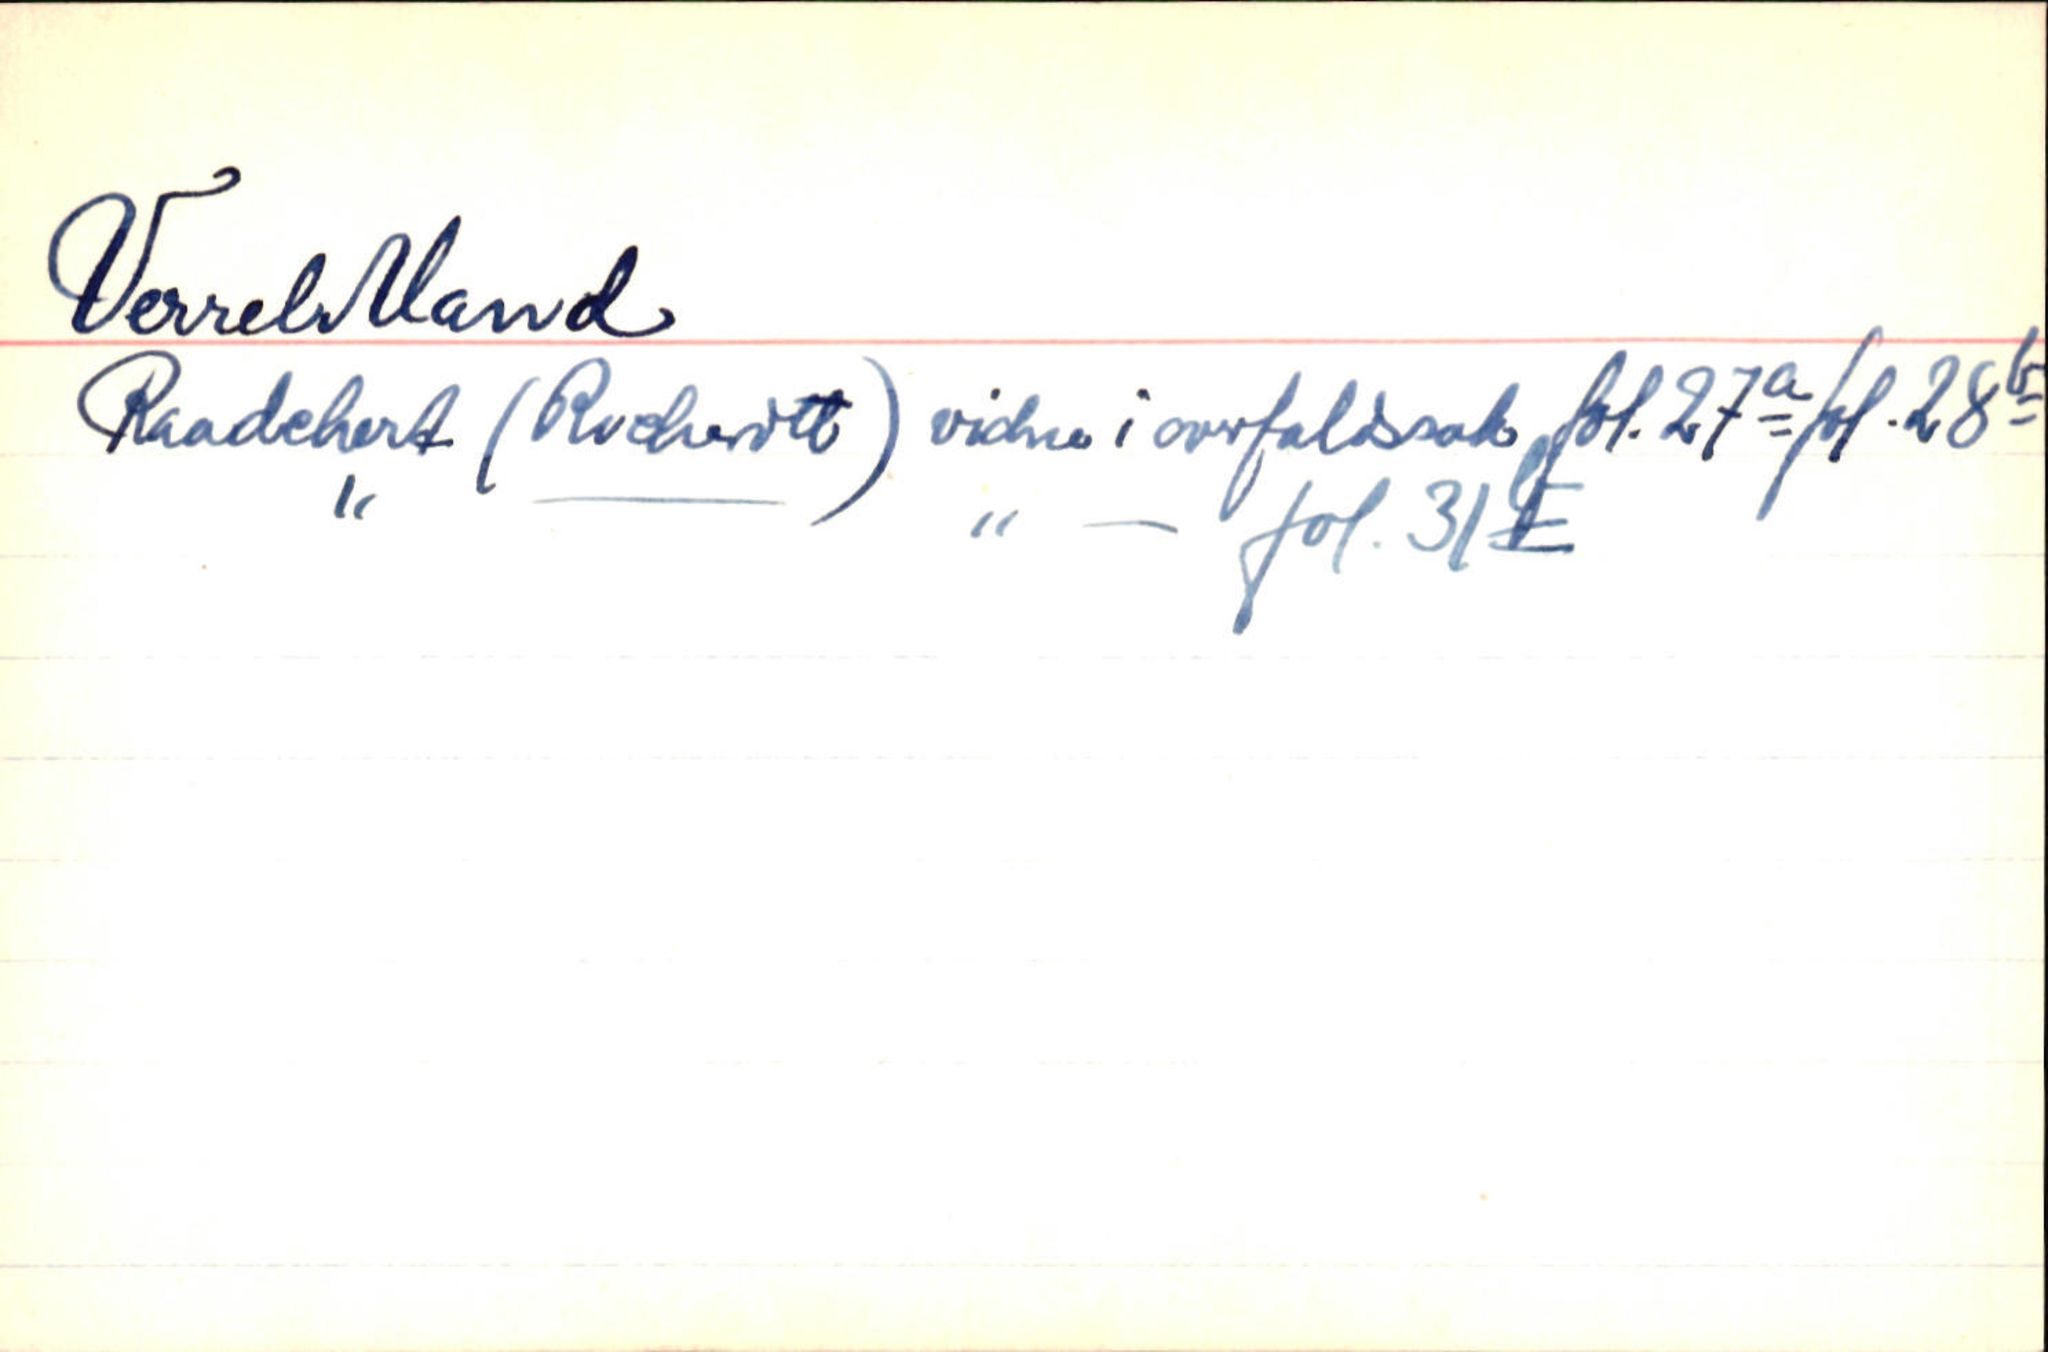 Verrel Mand
Raadchert (Rucheritt) vidne i overfaldssak fol. 27a fol. 28b
" " — fol. 31